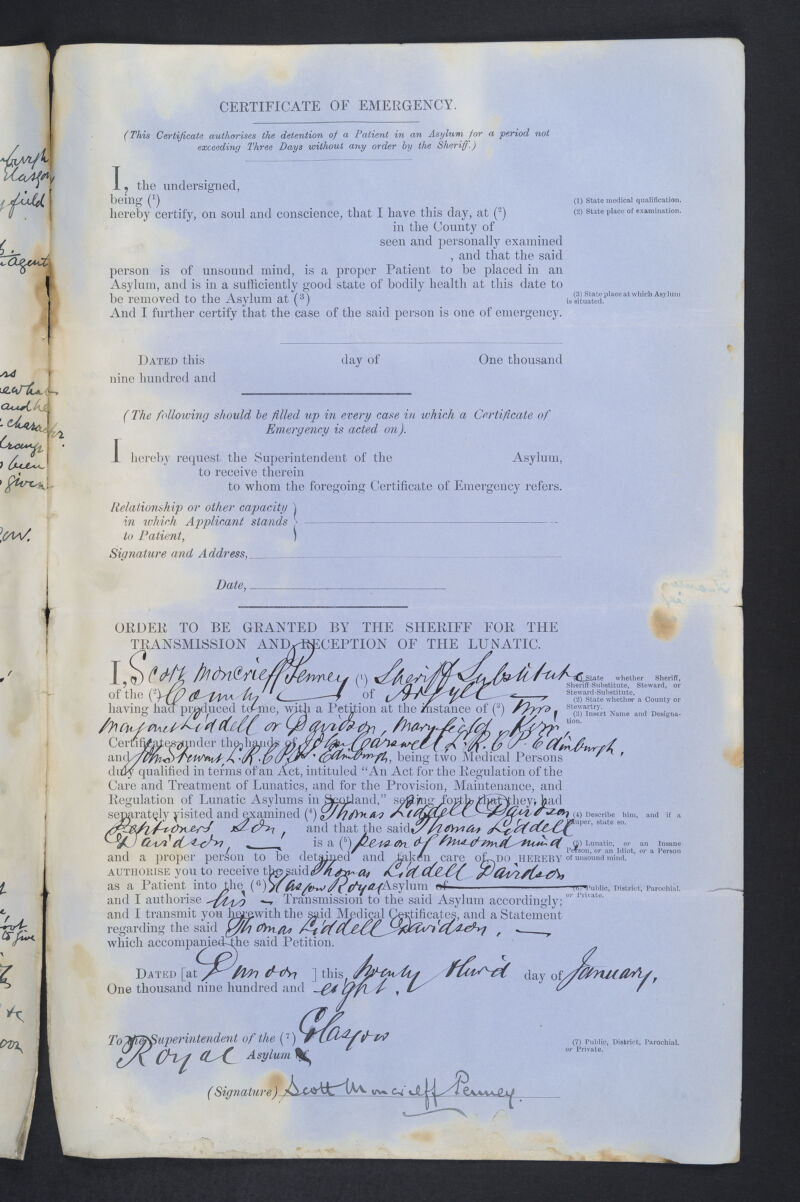 CERTIFICATE OF EMERGENCY.
(This Certificate authorises the detention of a Patient in an Asylum for a period not
exceeding Three Days without any order by the Sheriff.)
I, the undersigned,
being (1)
hereby certify, on soul and conscience, that I have this day, at (2)
in the County of
seen and personally examined
, and that the said
person is of unsound mind, is a proper Patient to be placed in an
Asylum, and is in a sufficiently good state of bodily health at this date to
be removed to the Asylum at (3)
And I further certify that the case of the said person is one of emergency.
(1) State medical qualification.
(2) State place of examination.
(3) State place at which Asylum
is situated.
DATED this day of One thousand
nine hundred and
(The following should be filled up in every case in which a Certificate of
Emergency is acted on).
I hereby request the Superintendent of the Asylum,
to receive therein
to whom the foregoing Certificate of Emergency refers.
Relationship or other capacity
in which Applicant stands
to Patient,
Signature and Address,
Date,
ORDER TO BE GRANTED BY THE SHERIFF FOR THE
TRANSMISSION AND RECEPTION OF THE LUNATIC.
I, Scott Moncrieff Penney (1) Sheriff Substitute
of the (2) County of Argyll
having had produced to me, with a Petition at the instance of (3) Mrs.
Margaret Liddell or Davidson, Maryfield, Kirn
Certificates under the hands of John Carswell L.R.C.P. Edinburgh,
and John Stewart L.R.C.P. Edinburgh, being two Medical Persons
duly qualified in terms of an Act, intituled "An Act for the Regulation of the
Care and Treatment of Lunatics, and for the Provision, Maintenance, and
Regulation of Lunatic Asylums in Scotland," setting forth that they had
separately visited and examined (4) Thomas Liddell Davidson
Petitioners son, and that the said Thomas Liddell
Davidson, is a (5) person of unsound mind,
and a proper person to be detained and taken care of, DO HEREBY
AUTHORISE you to receive the said Thomas Liddell Davidson
as a Patient into the (6) Glasgow Royal Asylum of
and I authorise his Transmission to the said Asylum accordingly;
and I transmit you herewith the said Medical Certificates, and a Statement
regarding the said Thomas Liddell Davidson,
which accompanied the said Petition.
(1) State whether Sheriff,
Sheriff-Substitute, Steward, or
Steward-Substitute.
(2) State whether a County or
Stewartry.
(3) Insert Name and Designa-
tion.
(4) Describe him, and if a
Pauper, state so.
(5) Lunatic, or an Insane
Person, or an Idiot, or a Person
of unsound mind.
(6) Public, District, Parochial,
or Private.
DATED [at Dunoon ] this, twenty third day of January,
One thousand nine hundred and eight.
To the Superintendent of the (7) Glasgow
Royal Asylum
(7) Public, District, Parochial,
or Private.
(Signature) Scott Moncrieff Penney.